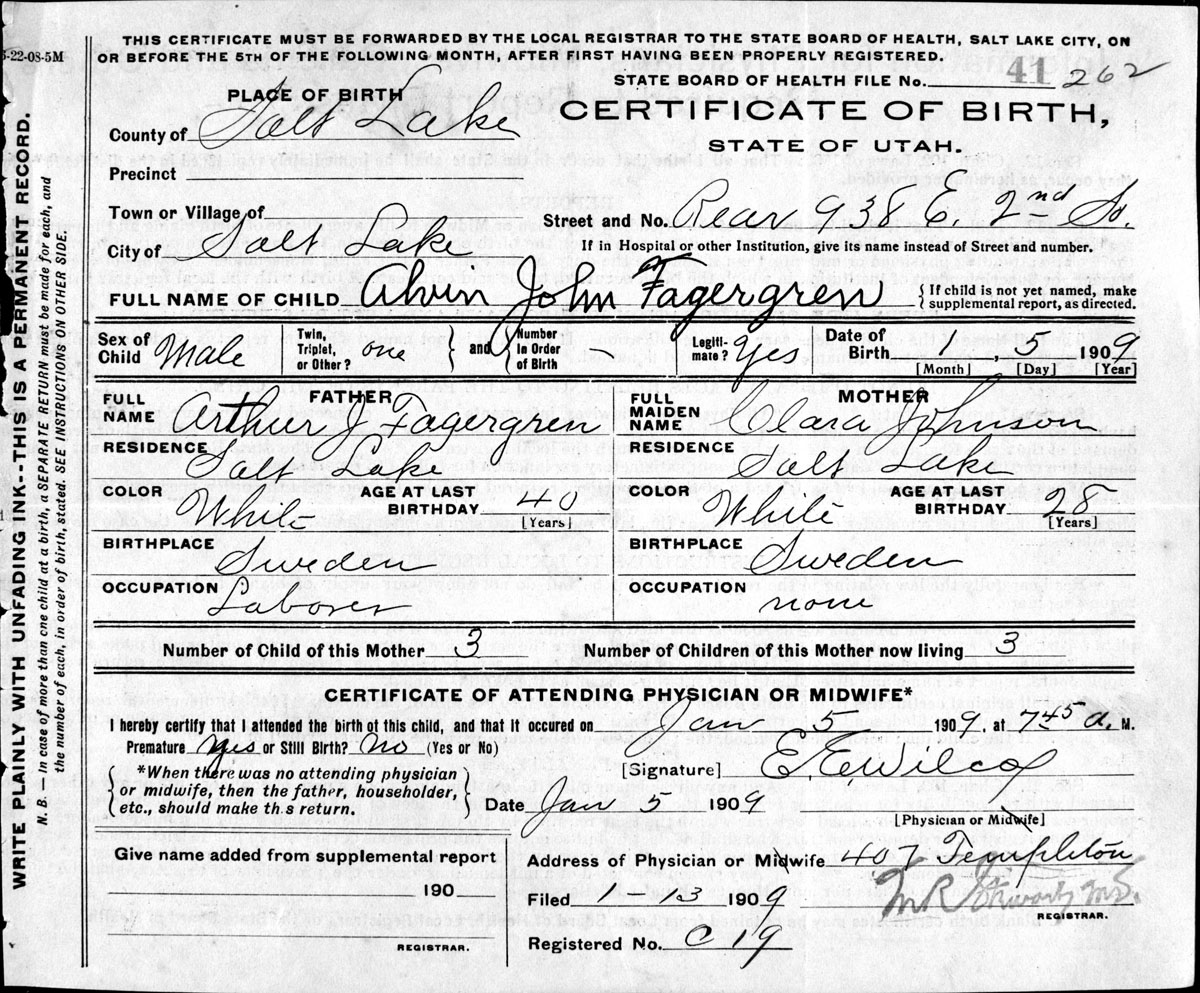 THIS CERTIFICATE MUST BE FORWARDED BY THE LOCAL REGISTRAR TO THE STATE BOARD OF HEALTH, SALT LAKE CITY, ON
OR BEFORE THE 5TH OF THE FOLLOWING MONTH, AFTER FIRST HAVING BEEN PROPERLY REGISTERED.
-22-08-5M
STATE BOARD OF HEALTH FILE No. 41 262
PLACE OF BIRTH
CERTIFICATE OF BIRTH,
STATE OF UTAH.
County of Salt Lake
Precinct
Town or Village of
Street and No. Rear 938 E. 2nd So.
City of Salt Lake
If in Hospital or other Institution, give its name instead of Street and number.
FULL NAME OF CHILD Alvin John Fagergren
{ If child is not yet named, make
supplemental report, as directed.
Sex of Child Male
Twin, Triplet, or Other? one } and { Number in Order of Birth
Legiti-mate? Yes
Date of Birth 1, 5 1909
[Month] [Day] [Year]
FATHER
FULL NAME Arthur J Fagergren
RESIDENCE Salt Lake
COLOR White
AGE AT LAST BIRTHDAY 40
[Years]
BIRTHPLACE Sweden
OCCUPATION Laborer
MOTHER
FULL MAIDEN NAME Clara Johnson
RESIDENCE Salt Lake
COLOR White
AGE AT LAST BIRTHDAY 28
[Years]
BIRTHPLACE Sweden
OCCUPATION none
Number of Child of this Mother 3 Number of Children of this Mother now living 3
CERTIFICATE OF ATTENDING PHYSICIAN OR MIDWIFE*
I hereby certify that I attended the birth of this child, and that it occured on Jan 5 1909, at 745 a. M.
Premature Yes or Still Birth? No (Yes or No)
{ *When there was no attending physician
or midwife, then the father, householder,
etc., should make th.s return. }
[Signature] E.E. Wilcox
Date Jan 5 1909
[Physician or Midwife]
Give name added from supplemental report
190
REGISTRAR.
Address of Physician or Midwife 407 Templeton
Filed 1-13 1909
M R Stewart M.D.
REGISTRAR.
Registered No. C 19
WRITE PLAINLY WITH UNFADING INK--THIS IS A PERMANENT RECORD.
N. B. — In case of more than one child at a birth, a SEPARATE RETURN must be made for each, and
the number of each, in order of birth, stated. SEE INSTRUCTIONS ON OTHER SIDE.